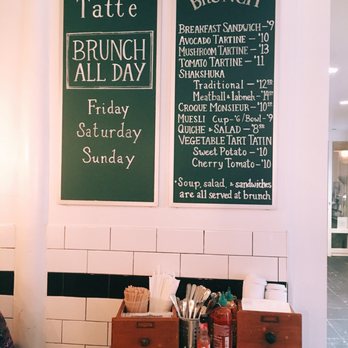 Tatte
BRUNCH
ALL DAY
Friday
Saturday
Sunday
BRUNCH
BREAKFAST SANDWICH - $9
AVOCADO TARTINE - $10
MUSHROOM TARTINE - $13
TOMATO TARTINE - $11
SHAKSHUKA
Traditional - $12.00
Meatball & labneh - $14.00
CROQUE MONSIEUR - $10.00
MUESLI Cup - $6 / Bowl - $9
QUICHE & SALAD - $8.95
VEGETABLE TART TATIN
Sweet Potato - $10
Cherry Tomato - $10
*Soup, salad, & sandwiches
are all served at brunch